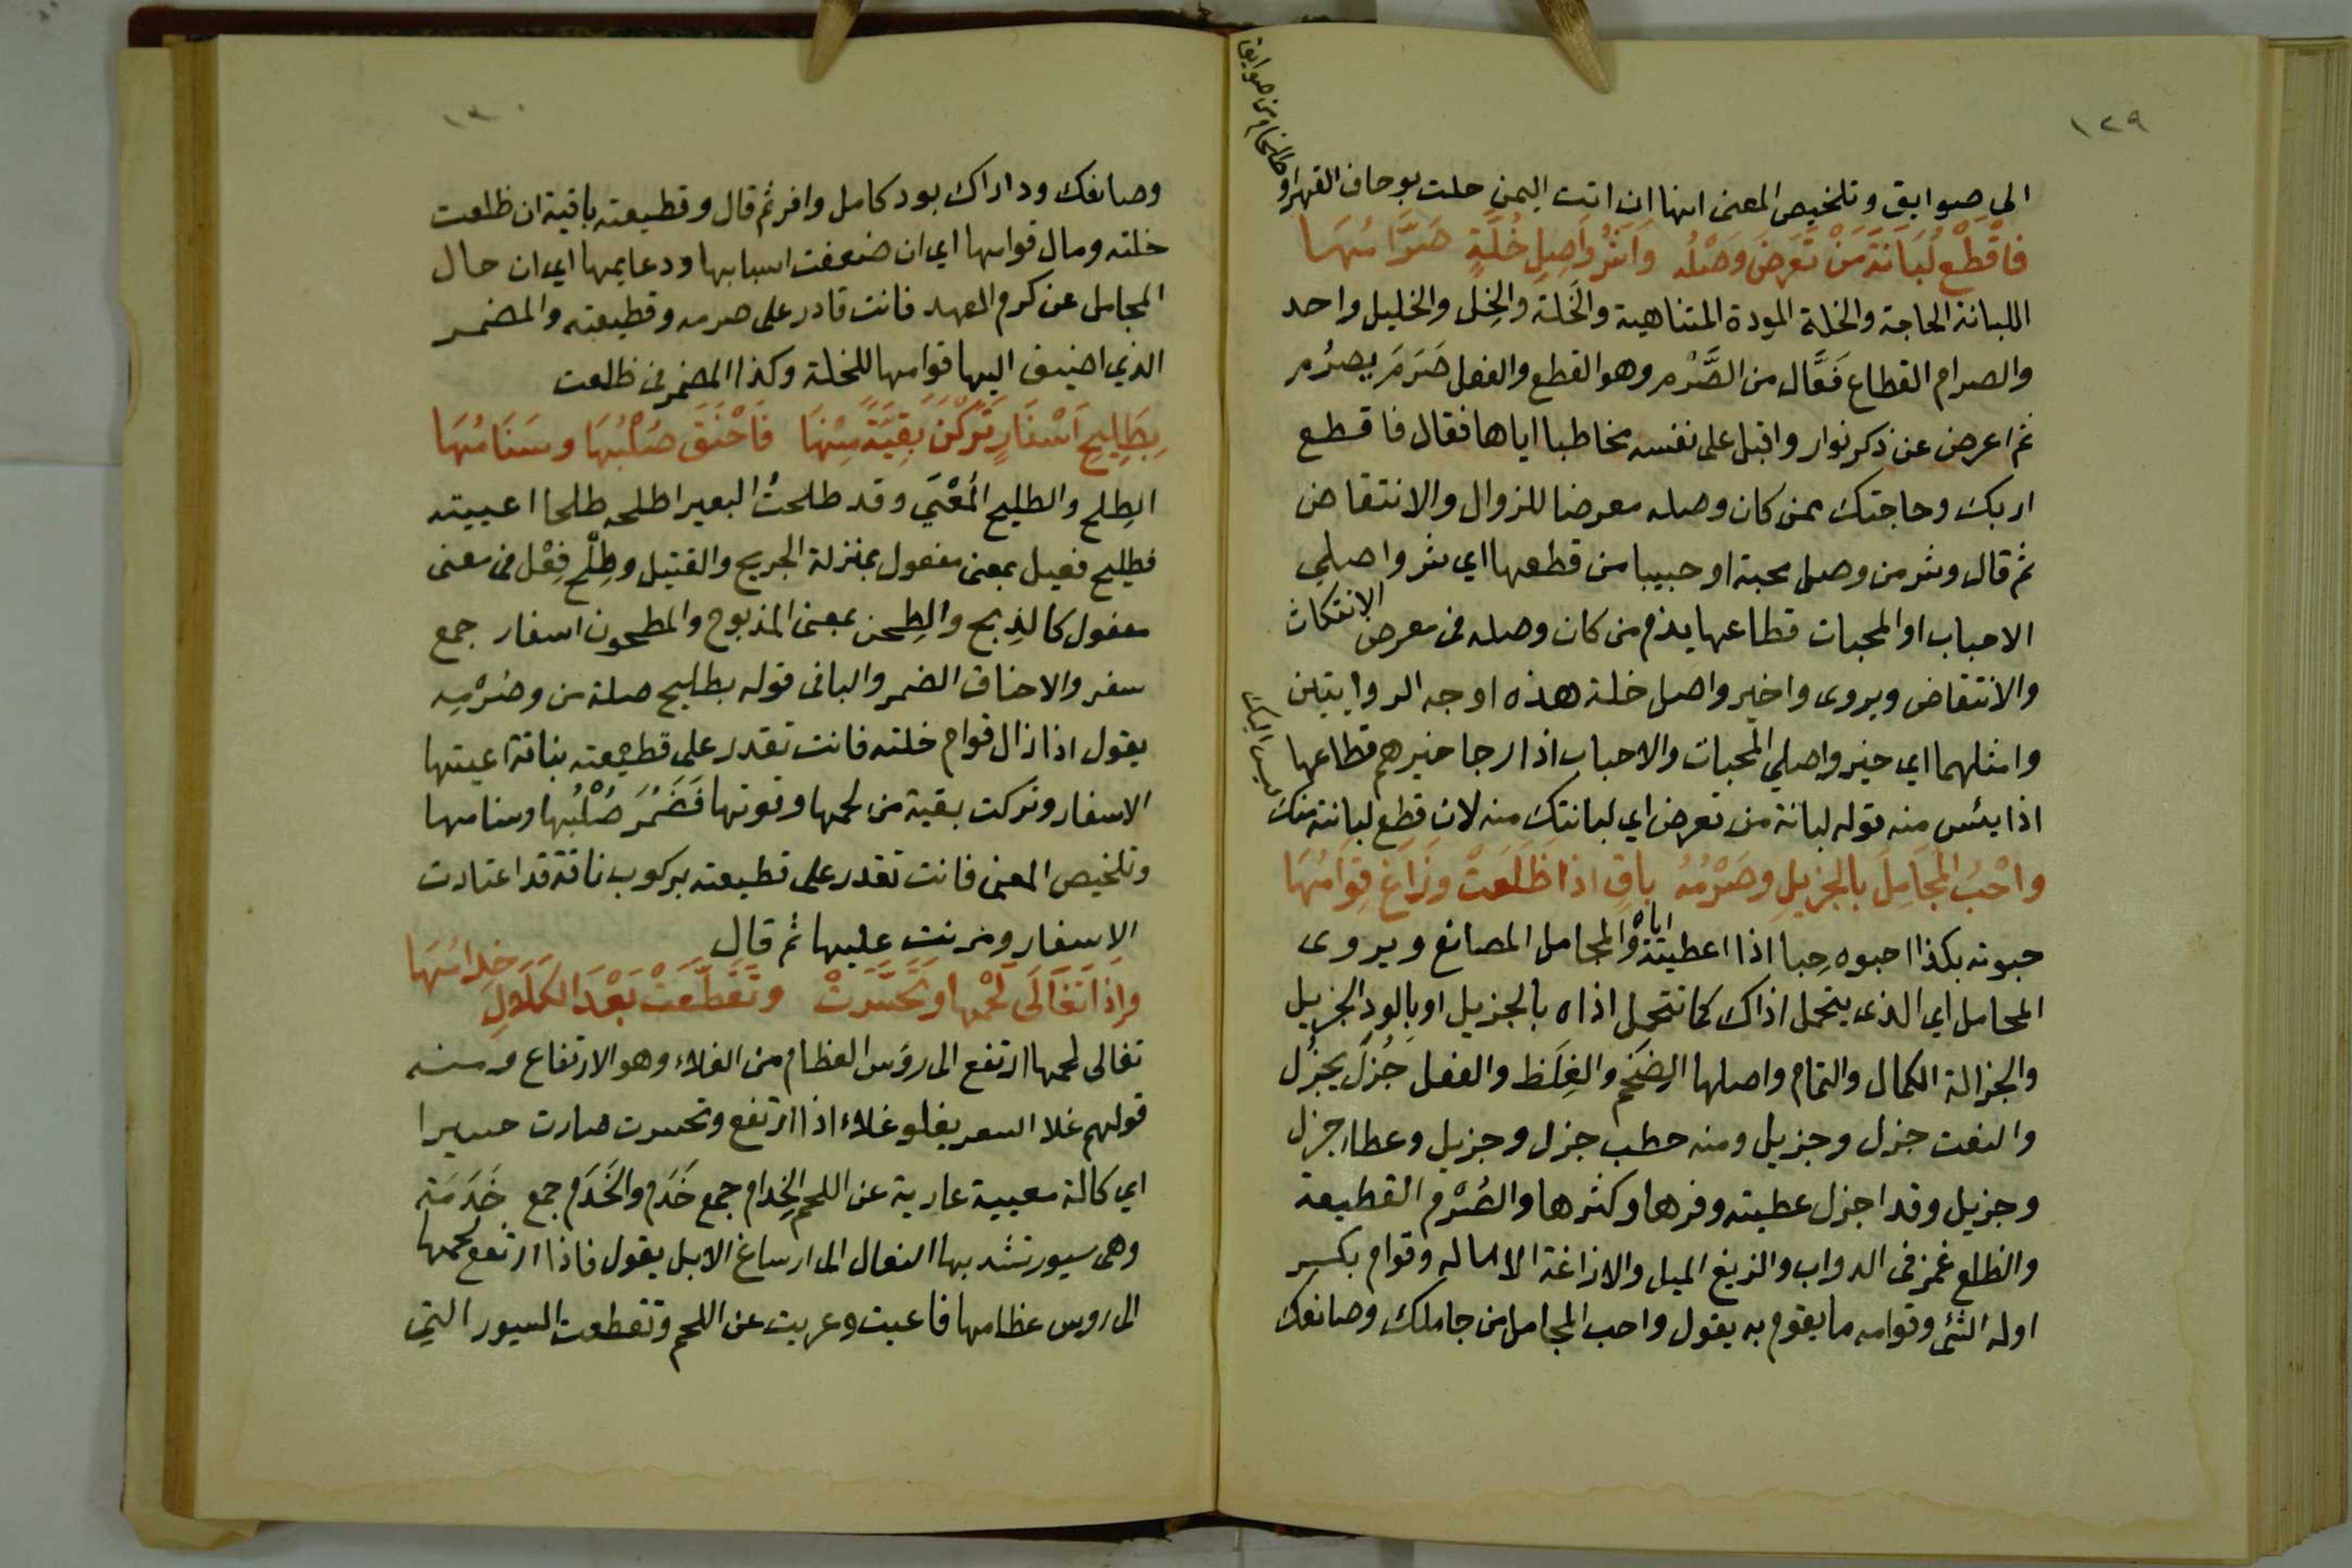 ١٢٩
الى صوايق وتلخيص المعنى انها ان اتت اليمن حلت بوحاف القهر او
طلخام من صوايق
فَاقْطَعْ لُبَانَةَ مَنْ تَعَرَضَ وَصْلُه وَلَشَرُّ وَاصِلِ خُلَّةٍ صَرَّامُهَا
اللبانة الحاجة والخلة المودة المتناهية والخَلة والخِل والخليل واحد
والصرام القطاع فَعَّال من الصَّرْم وهو القطع والفعل صَرَمَ يصرُم
ثم اعرض عن ذكر نوار واقبل على نفسه مخاطبا اياها فقال فاقطع
اربك وحاجتك ممن كان وصله معرضا للزوال والانتقاض
ثم قال وشر من وصل محبة او حبيبا من قطعها اي شر واصلي
الاحباب او المحبات قطاعها يذم من كان وصله فى معرض الانتكاث
والانتقاض ويروى واخير واصل خلة هذه اوجه الروايتين
وامثلهما اي خير واصلي المحبات والاحباب اذا رجا خيرهم قطاعها
اذا يئس منه قوله لبانة من تعرض اي لبانتك منه لان قطع لبانته منك
ليس اليك
واحْبُ المجَامِلَ بالجزِيلِ وصَرْمُهُ باقٍ اذا ظَلَعَتْ وزَاغَ قِوَامُهَا
حبوته بكذا احبوه حِبا اذا اعطيته اياه والمجامل المصانع ويروى
المحامل اي الذى يتحمل اذاك كما تتحمل اذاه بالجزيل اوبالود الجزيل
والجزالة الكمال والتمام واصلها الضِخَم والغِلَظ والفعل جُزلَ يجزُل
والنعت جزل وجزيل ومنه حطب جزل وجزيل وعطاء جزل
وجزيل وقد اجزل عطيته وفرها وكثرها والصُرْم القطيعة
والظلع غمز فى الدواب والزيغ الميل والازاغة الاماله وقوام بكسر
اوله الشئ وقوامه مايقوم به يقول واحب المجامل من جاملك وصانعك
١٣٠
وصانعك وداداك بود كامل وافر ثم قال وقطيعته باقية ان ظلعت
خلته ومال قوامها اي ان ضعفت اسبابها ودعايمها اي ان حال
المجامل عن كرم العهد فانت قادر على صرمه وقطيعته والمضمر
الذي اضيف اليها قوامها للخلة وكذا المضمر فى ظلعت
بِطَلِيحِ اَسْفَارٍ تَرَكْنَ بَقِيَّةً مِنْهَا فَاحْنَقَ صُلْبُهَا وسَنَامُهَا
الطِلح والطليح المُعْيَي وقد طلحتُ البعير اطلحه طلحا اعييته
فطليح فعيل بمعنى مفعول بمنزلة الجريح والقتيل وطِلْح فِعْل فى معنى
مفعول كالذِبح والطِحن بمعنى المذبوح والمطحون اسفار جمع
سفر والاحناق الضمر والبا فى قوله بطليح صلة من وصُرْمِه
يقول اذا زال قوام خلته فانت تقدر على قطيعته بناقة اعيتها
الاسفار وتركت بقية من لحمها وقوتها فَضَمُرَ صُلْبُها وسنامها
وتلخيص المعنى فانت تقدر على قطيعته بركوب ناقة قد اعتادت
الاسفار ومرنت عليها ثم قال
وَاذا تَغَالَى لَحْمُها وتَحَسَّرَتْ وتَقَطَّعَتْ بَعْدَ الكَلَالِ خِدامُهَا
تغالى لحمها ارتفع الى رؤس العظام من الغلاء وهو الارتفاع ومنه
قولهم غلا السعر يغلو غلاء اذا ارتفع وتحسرت صارت حسيرا
اي كالة معيية عارية عن اللحم الخِدام جمع خَدَم والخَدَم جمع خَدَمَة
وهى سيور تشد بها النعال الى ارساغ الابل يقول فاذا ارتفع لحمها
الى روس عظامها فاعيت وعريت عن اللحم وتقطعت السيور التي